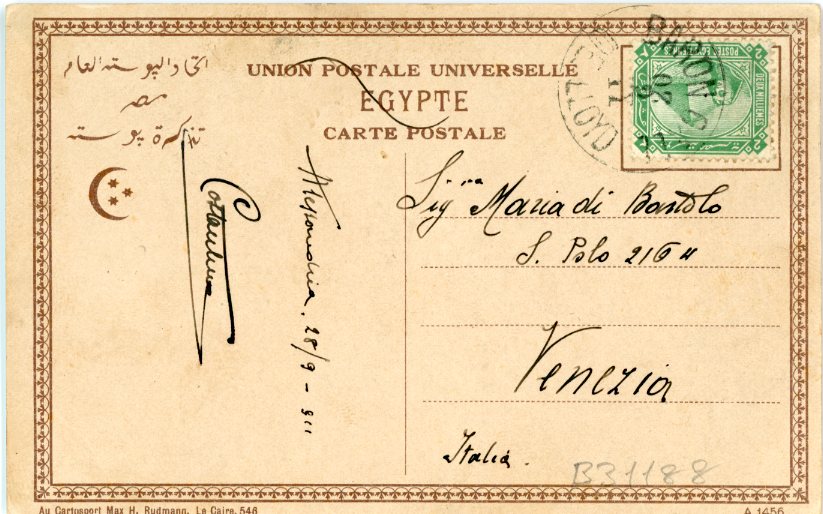 اتحاد البوسته العام
مصر
تذكرة بوسته
UNION POSTALE UNIVERSELLE
EGYPTE
CARTE POSTALE
Alessandria. 28/9 - 911
Sig.ra Maria di Bartolo
S. Polo 2164
Venezia
Italia.
B31188
BARON
LLOYD
DEUX MILLIEMES
POSTES EGYPTIENNES
2
2
Au Cartosport Max H. Rudmann, Le Caire. 546
A 1456